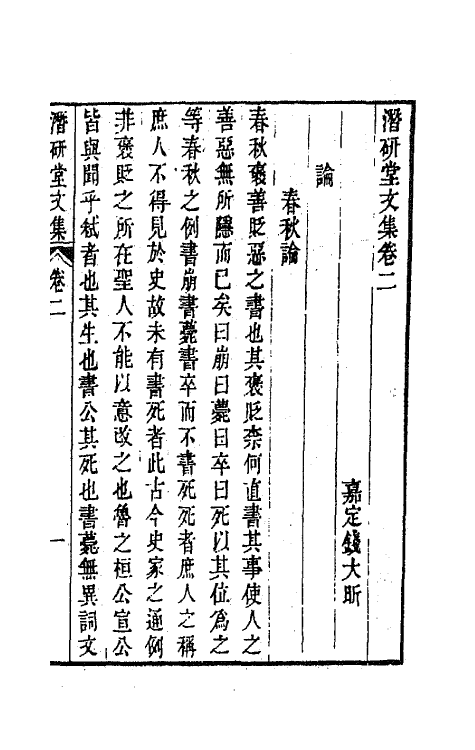 潛研堂文集卷二
嘉定錢大昕
論
春秋論
春秋襃善貶惡之書也其襃貶柰何直書其事使人之
善惡無所隱而已矣曰崩曰薨曰卒曰死以其位爲之
等春秋之例書崩書薨書卒而不書死死者庶人之稱
庶人不得見於史故未有書死者此古今史家之通例
非襃貶之所在聖人不能以意改之也魯之桓公宣公
皆與聞乎弒者也其生也書公其死也書薨無異詞文
潛研堂文集 卷二 一